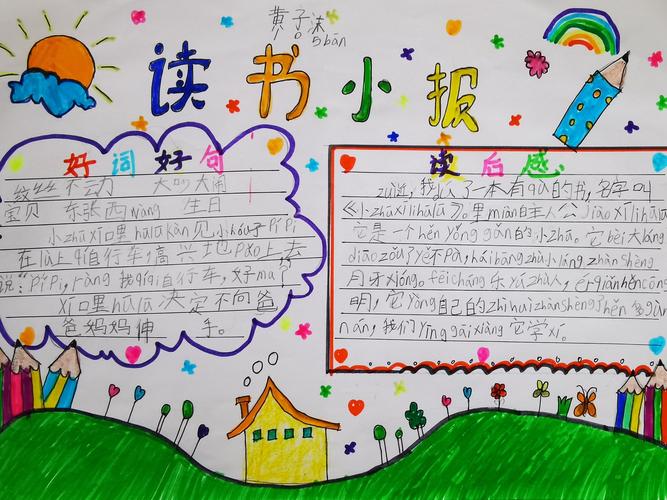 黄子沐
5bān
读书小报
好词好句
纹丝不动 大吵大闹
宝贝 东张西wàng 生日
小zhū xī哩hūlū kàn见小hóuzi pípí
在lù上qí自行车,高兴地pǎo上去
说:"pípí,ràng我qíqí自行车,好ma?"
xī哩hūlū决定不向爸
爸妈妈伸手。
读后感
zuì近,我dú了一本有qù的书,名字叫
《小zhū xīlihūlū》。里miàn的主人公jiào xīlihūlū
它是一个hěn yǒng gǎn的小zhū。它bèi大láng
diāo zǒu了yě不pà,hái bāng zhù小láng zhàn shèng
月牙xióng。fēi cháng乐yú zhù人,ér qiě hěn cōng
明,它yòng自己的zhì huì zhàn shèng了hěn多kùn
nán,我们yīng gāi xiàng它学xí。